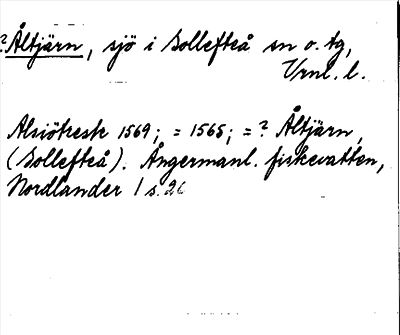 ? Åltjärn, sjö i Sollefteå sn o. tg,
Vrnl. l.
Alsiötresk 1569; = 1565; = ? Åltjärn,
(Sollefteå). Ångermanl. fiskevatten,
Nordlander 1 s. 26